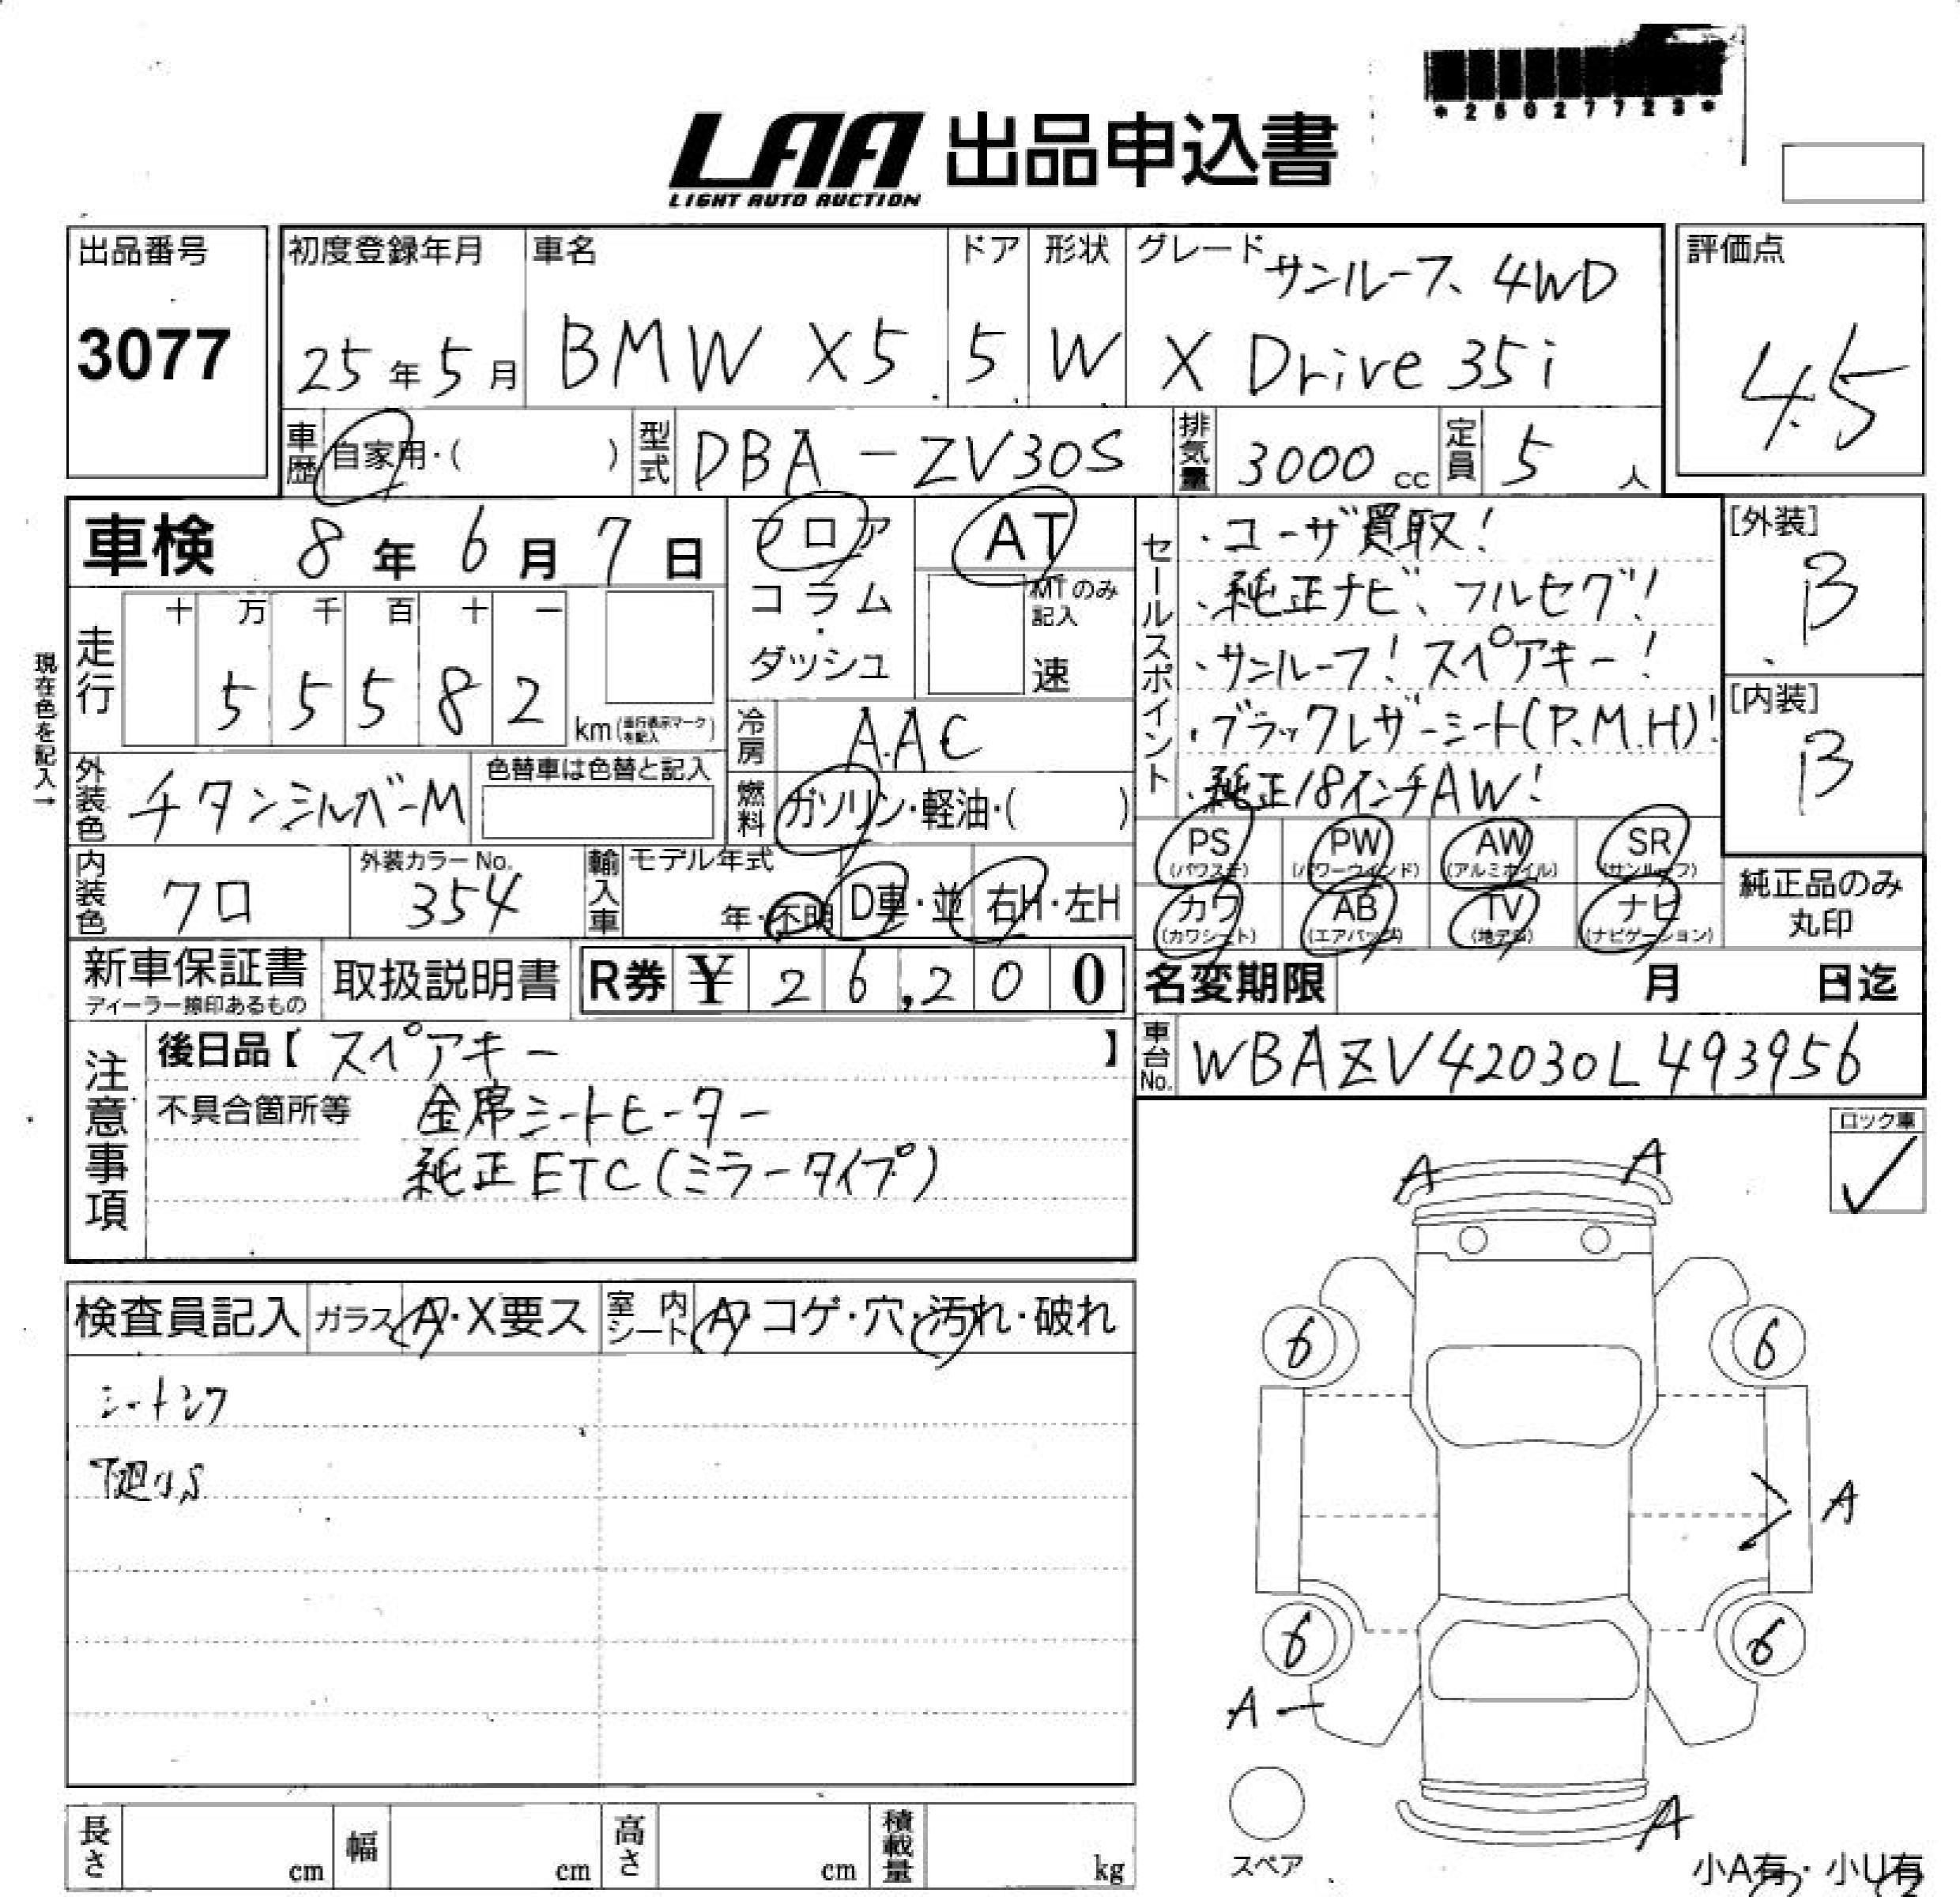 *25027723*
LAA 出品申込書
LIGHT AUTO AUCTION
出品番号
3077
初度登録年月
25年5月
車名
BMW X5
ドア
5
形状
W
グレード
サンルーフ、4WD
X Drive 35i
評価点
4.5
車歴
自家用・( )
型式
DBA-ZV30S
排気量
3000 cc
定員
5 人
車検 8年 6月 7日
フロア
コラム・
ダッシュ
AT
MTのみ
記入
速
走行
十 万 千 百 十 一
5 5 5 8 2
km (走行表示マークを記入)
現在色を記入→
冷房
A.A.C
外装色
チタンシルバーM
色替車は色替と記入
燃料
ガソリン・軽油・( )
内装色
クロ
外装カラーNo.
354
輸入車
モデル年式
年・不明
D車・並
右H・左H
セールスポイント
・ユーザ買取!
・純正ナビ、フルセグ!
・サンルーフ!スペアキー!
・ブラックレザーシート(P.M.H)!
・純正18インチAW!
[外装]
B
[内装]
B
PS
(パワステ)
PW
(パワーウインド)
AW
(アルミホイル)
SR
(サンルーフ)
カワ
(カワシート)
AB
(エアバッグ)
TV
(地デジ)
ナビ
(ナビゲーション)
純正品のみ
丸印
新車保証書
ディーラー捺印あるもの
取扱説明書
R券 ¥ 26,200
名変期限 月 日迄
車台No.
WBAZV42030L493956
注意事項
後日品【スペアキー】
不具合箇所等
全席シートヒーター
純正ETC(ミラータイプ)
ロック車
✓
検査員記入
ガラス A・X要ス
室内シート A・コゲ・穴・汚れ・破れ
シートシワ
下廻りS
A
A
6
6
A
6
6
A
A
スペア
小A有・小U有
長さ cm
幅 cm
高さ cm
積載量 kg